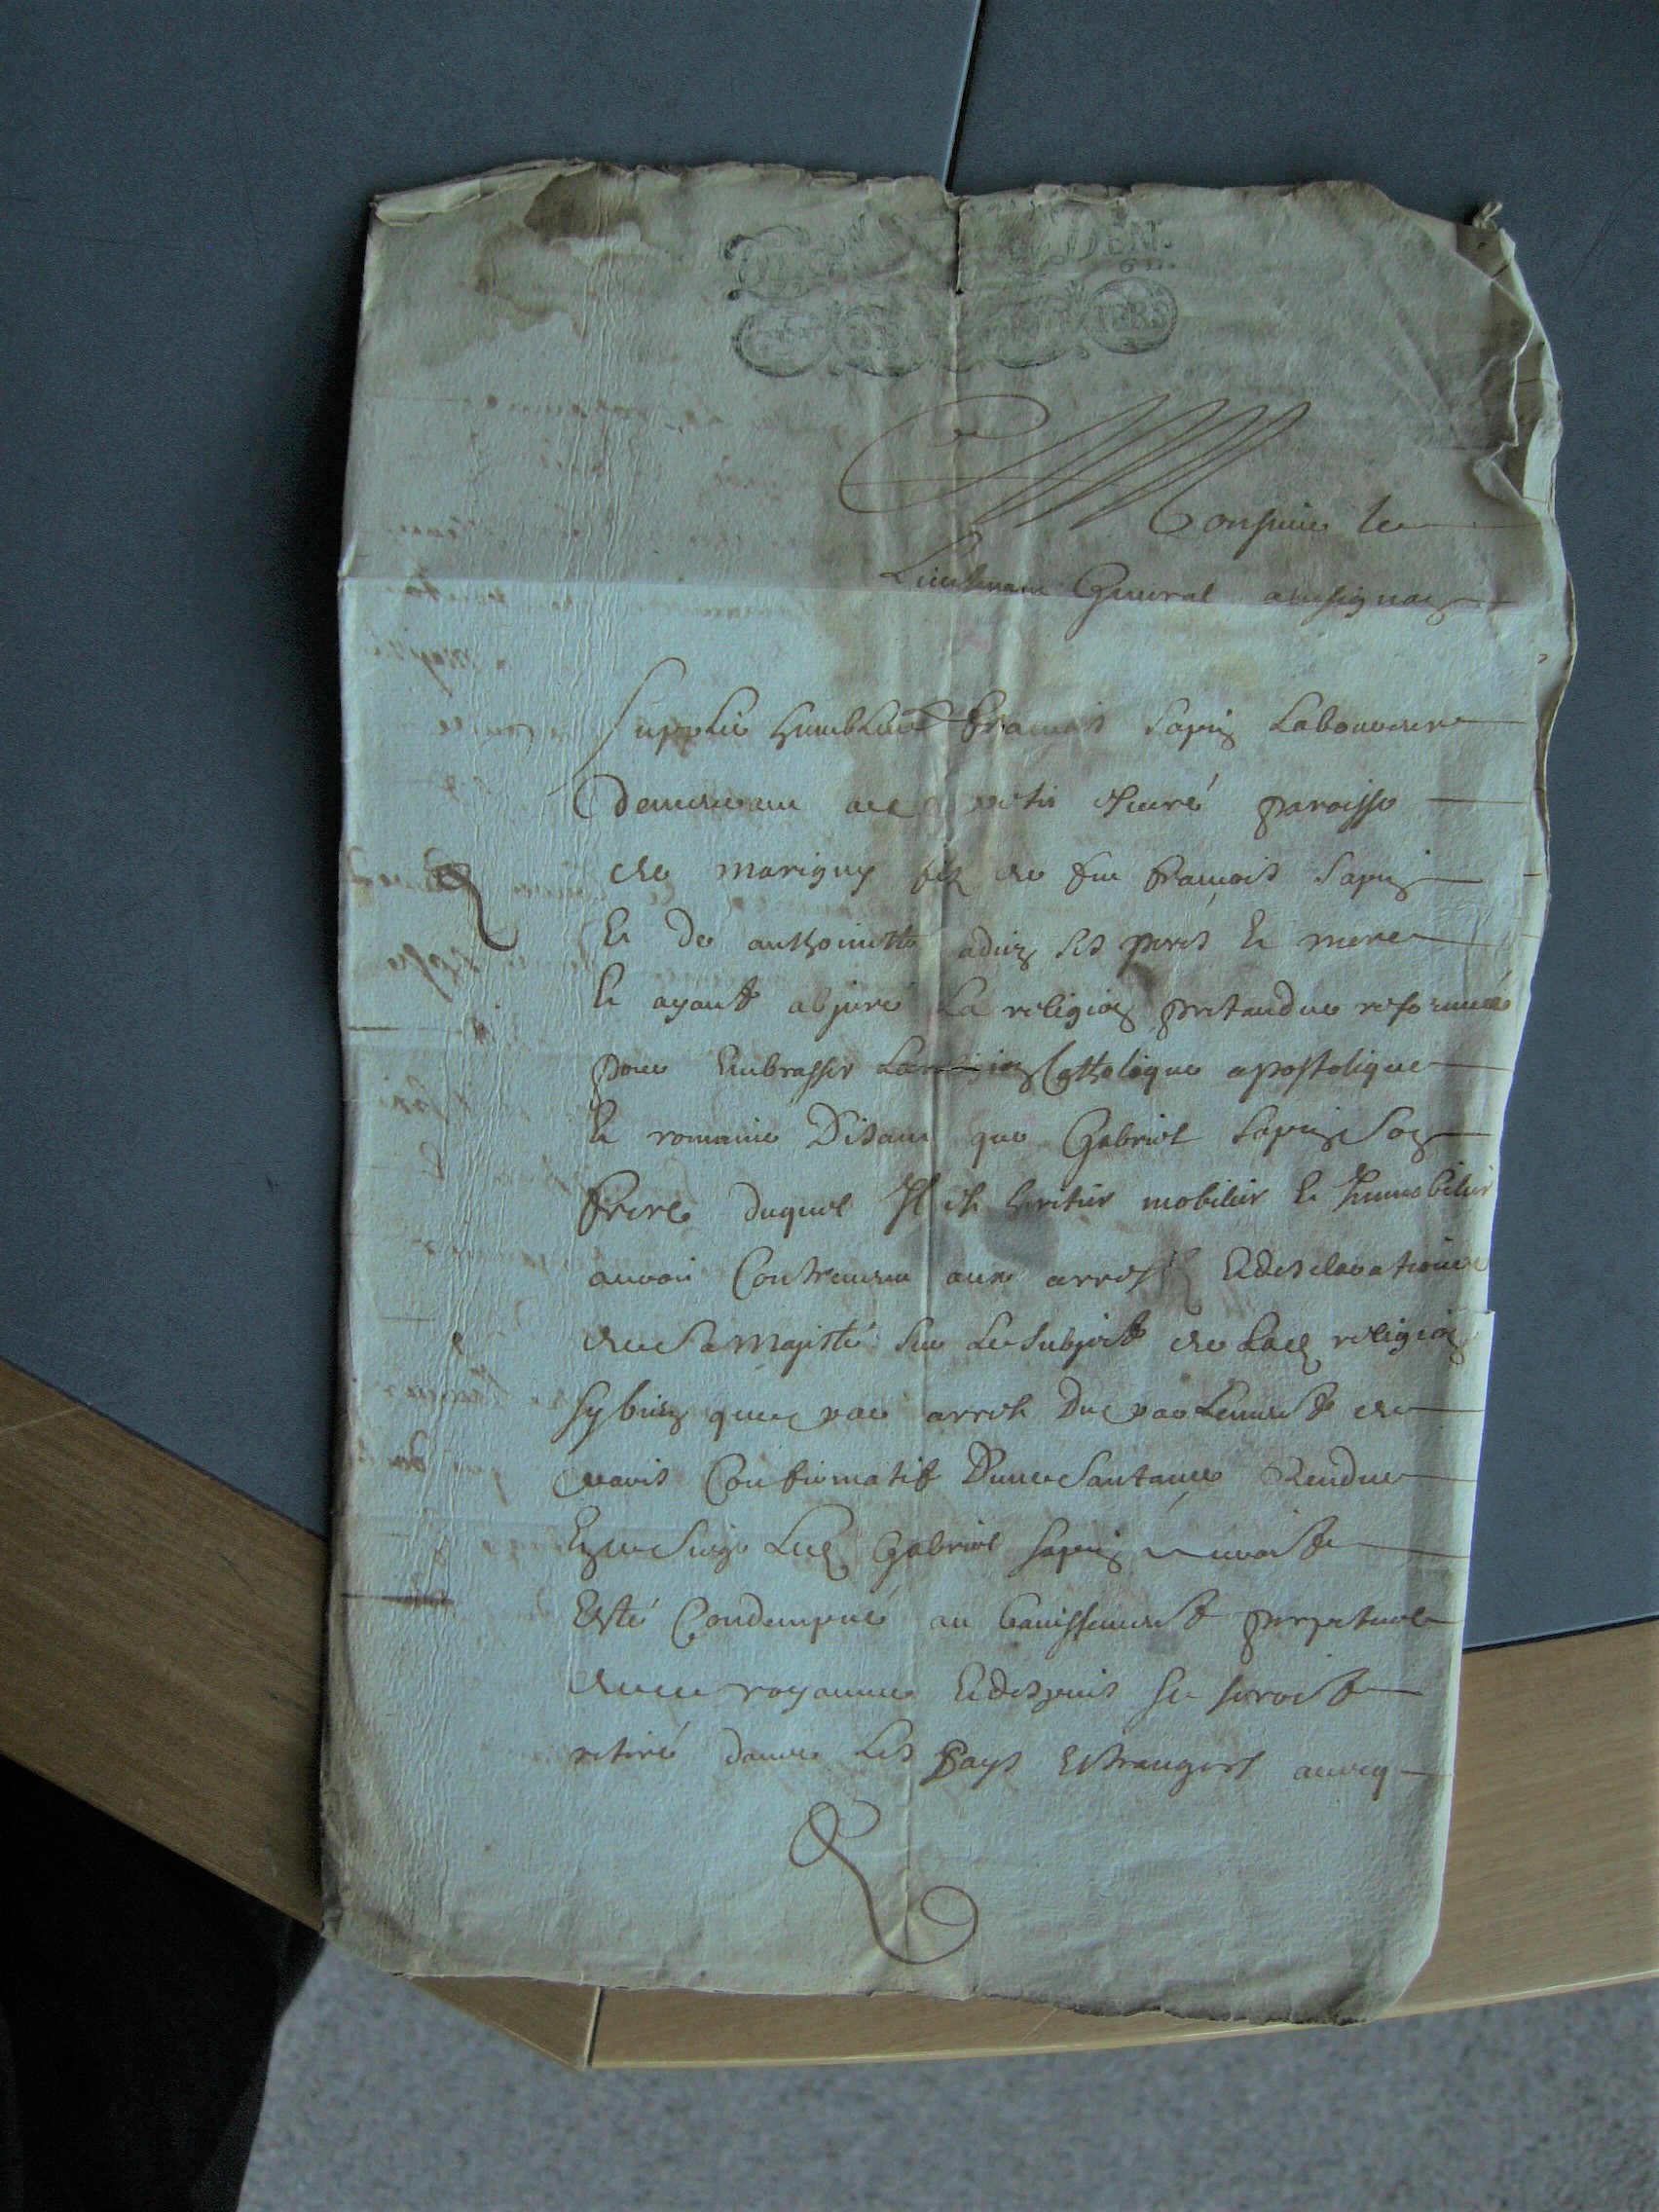 DEN.
6 D.
Monsieur le
Lieutenant General
Supplie humblemt François Sapin Laboureur
Demeurant au petit paroisse
de Marigny filz de feu François Sapin
Et de anthoinette adin ses peres Et mere
Et ayant abjuré La religion pretandue reformée
pour Embrasser La religion Catholique apostolique
Et romaine Disant que Gabriel Sapin Son
frere duquel Il est heritier mobilier Et Immobilier
auroit Contrevenu aux arrestz Et desclarations
de Sa Majesté Sur Le Subject de Lad religion
Sy bien que par arrest Du parlement de
paris Confirmatif D'une Santance Rendue
En ce Siege Led Gabriel Sapin auroit
Esté Condempné au banissement perpetuel
de ce royaume Et despuis Se seroit
retiré dans Les Pays Estrangers avecq